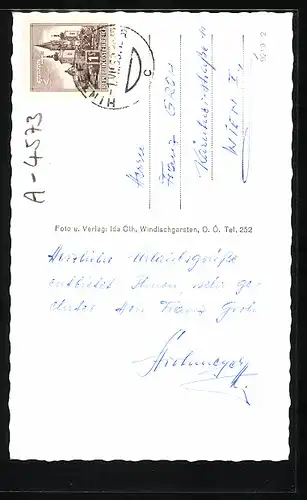 A-4573
Herrn
Franz GROH
Kärntnerstraße
WIEN I.
Foto u. Verlag: Ida Oth, Windischgarsten, O. Ö. Tel. 252
Herzliche Urlaubsgrüße
entbietet Ihnen, sehr ge-
ehrter Herr Franz Groh